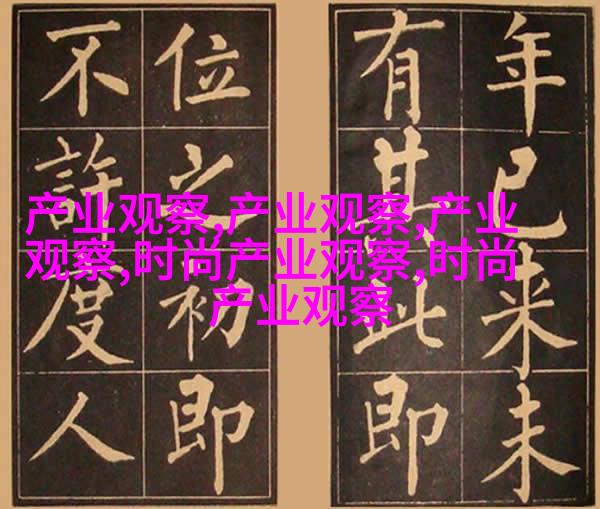 年已来未
有其此即
位之初即
不許度人
产业观察,产业观察,产业
观察,时尚产业观察,时尚
产业观察